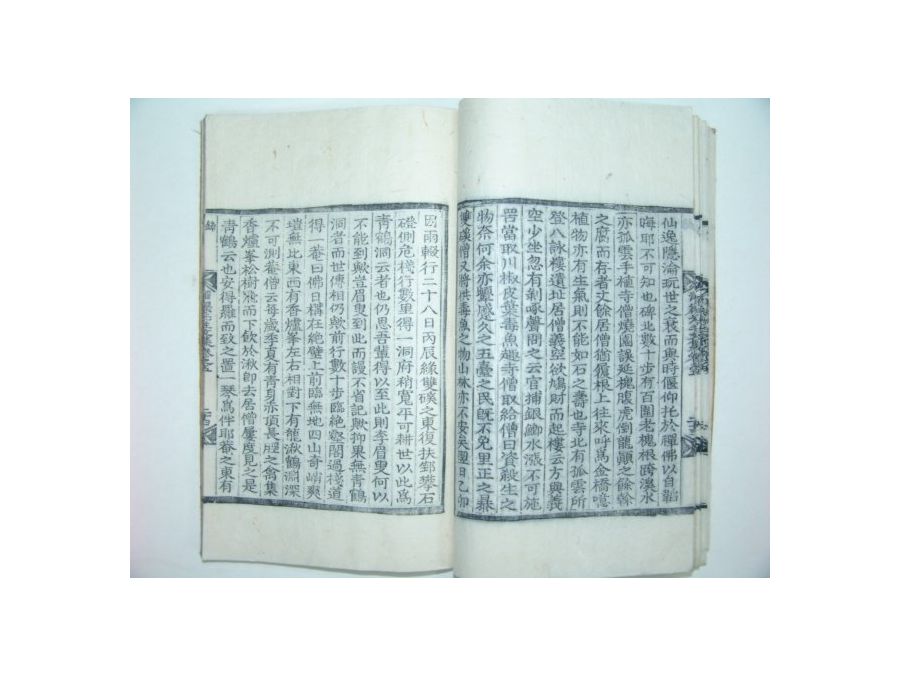 仙逸隱淪玩世之裁而與時偃仰托於禪佛以自韜
晦耶不可知也碑北數十步有百圍老槐根跨溪水
亦孤雲手植寺僧燒園誤延槐腹虎倒龍顚之餘幹
之腐而存者丈餘居僧猶履根上往來呼爲金橋噫
植物亦有生氣則不能如石之壽也寺北有孤雲所
登八詠樓遺址居僧義空欲鳩財而起樓云方與義
空少坐忽有剝啄聲問之云官捕銀鯽水漲不可施
罟當取川椒皮葉毒魚趣寺僧取給僧曰資殺生之
物奈何余亦顰慼久之五臺之民旣不免里正之暴
雙磎僧又將供毒魚之物山林亦不安矣翌日乙卯
因雨輟行二十八日丙辰緣雙磎之東復扶攀石
磴側危棧行數里得一洞府稍寬平可耕世以此爲
靑鶴洞云者也仍思吾輩得以至此則李眉叟何以
不能到歟豈眉叟到此而謾不省記歟抑果無靑鶴
洞者而世傳相仍歟前行數十步臨絶壑閣過棧道
得一菴曰佛日構在絶壁上前臨無地四山奇峭爽
塏無比東西有香爐峯左右相對下有龍湫鶴淵深
不可測菴僧云每歲季夏有靑身赤頂長脛之禽集
香爐峯松樹飛而下飮於湫卽去居僧屢度見之是
靑鶴云也安得羅而致之置一琴爲伴耶菴之東有